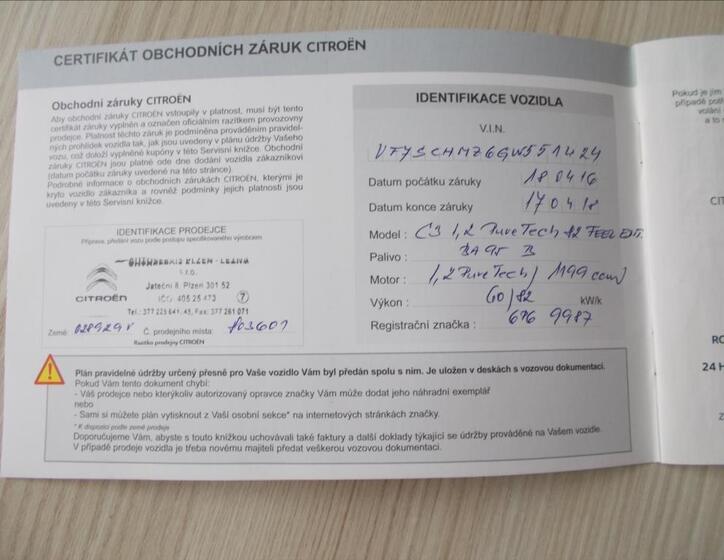 CERTIFIKÁT OBCHODNÍCH ZÁRUK CITROËN
Obchodní záruky CITROËN
Aby obchodní záruky CITROËN vstoupily v platnost, musí být tento
certifikát záruky vyplněn a označen oficiálním razítkem provozovny
prodejce. Platnost těchto záruk je podmíněna prováděním pravidel-
ných prohlídek vozidla tak, jak jsou uvedeny v plánu údržby Vašeho
vozu, což doloží vyplněné kupóny v této Servisní knížce. Obchodní
záruky CITROËN jsou platné ode dne dodání vozidla zákazníkovi
(datum počátku záruky uvedené na této stránce).
Podrobné informace o obchodních zárukách CITROËN, kterými je
kryto vozidlo zákazníka a rovněž podmínky jejich platnosti jsou
uvedeny v této Servisní knížce.
IDENTIFIKACE PRODEJCE
Příprava, předání vozu podle postupu specifikovaného výrobcem
s.r.o.
Jateční 8, Plzeň 301 52
IČO: 405 25 473 7
CITROËN
Tel.: 377 223 641, 43, Fax: 377 261 071
Země: Č. prodejního místa:
Razítko prodejny CITROËN
IDENTIFIKACE VOZIDLA
V.I.N.
VF7SCHMZ6GW551424
Datum počátku záruky 180416
Datum konce záruky 170418
Model : C3 1,2 PureTech 82 FEEL EDIT.
Palivo : BA 95 B
Motor : 1,2 PureTech / 1199 ccm
Výkon : 60/82 kW/k
Registrační značka : 6P6 9987
Plán pravidelné údržby určený přesně pro Vaše vozidlo Vám byl předán spolu s ním. Je uložen v deskách s vozovou dokumentací.
Pokud Vám tento dokument chybí:
- Váš prodejce nebo kterýkoliv autorizovaný opravce značky Vám může dodat jeho náhradní exemplář
nebo
- Sami si můžete plán vytisknout z Vaší osobní sekce* na internetových stránkách značky.
* K dispozici podle země prodeje
Doporučujeme Vám, abyste s touto knížkou uchovávali také faktury a další doklady týkající se údržby prováděné na Vašem vozidle.
V případě prodeje vozidla je třeba novému majiteli předat veškerou vozovou dokumentaci.
Pokud je jím
případě
volání
a to
24 H